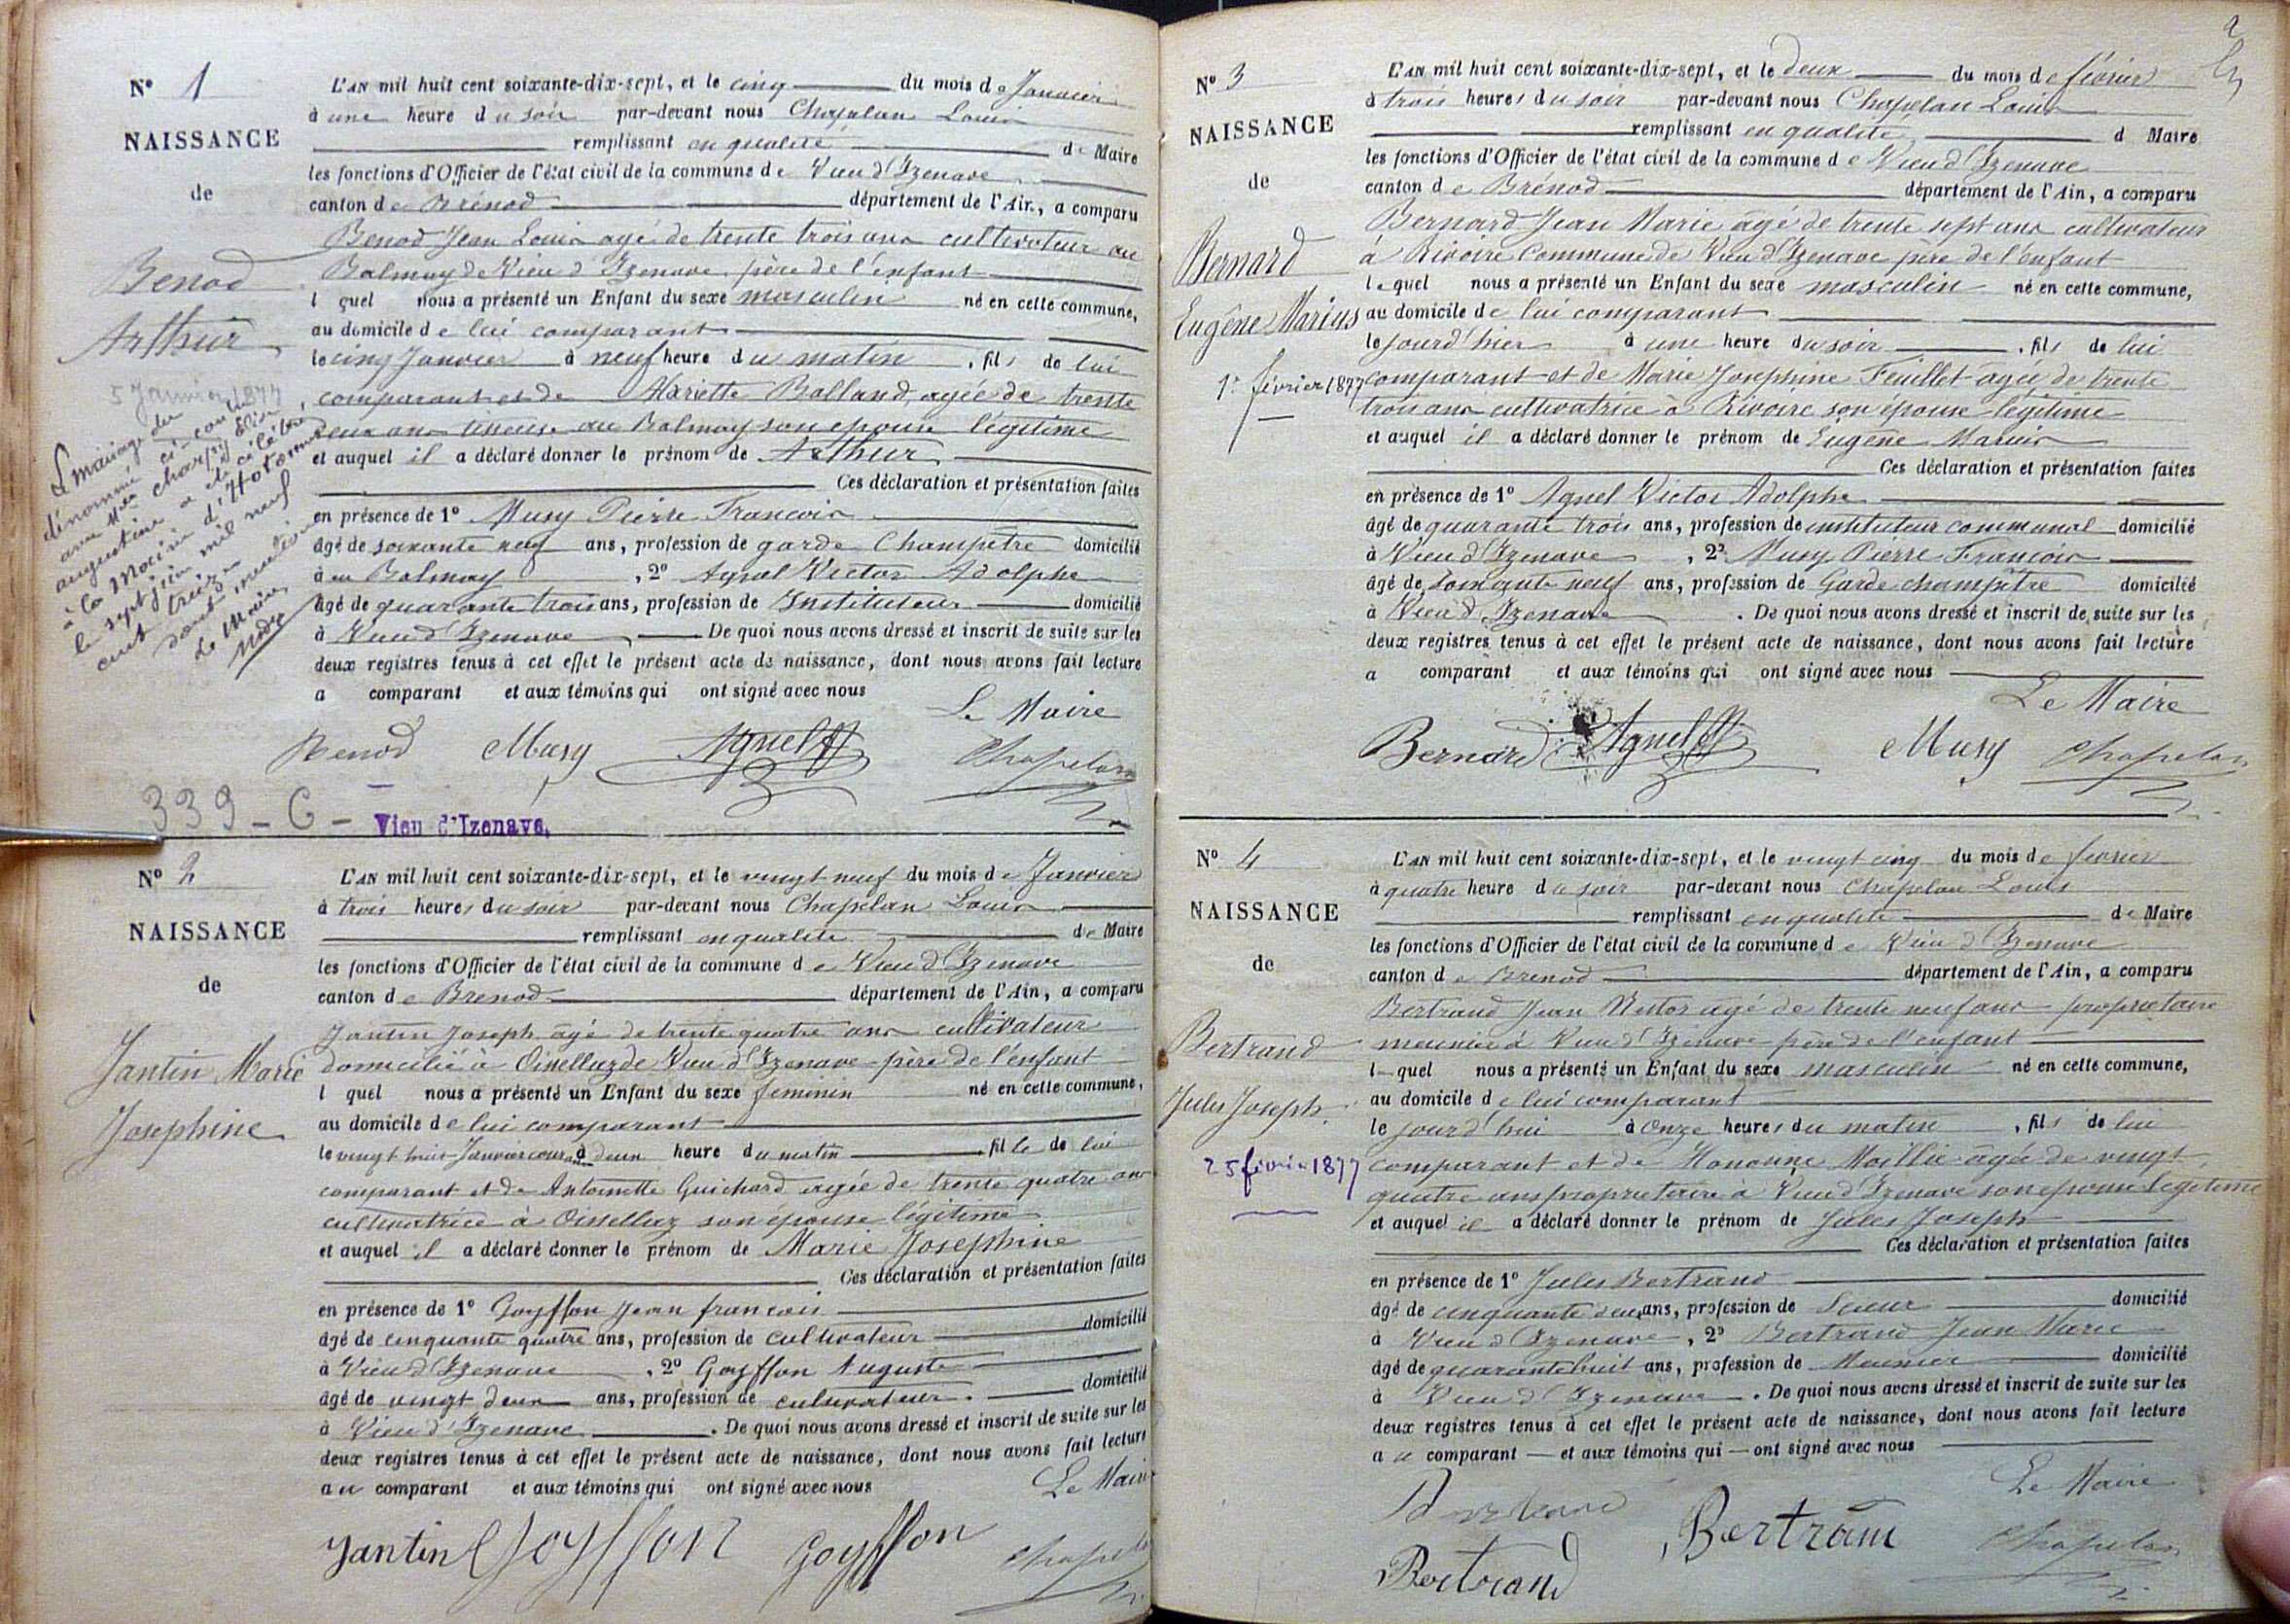 N° 1
NAISSANCE
de
Benod
Arthur
5 Janvier 1877
Le mariage du
dénommé ci-contre
avec Mlle Charpy Elisa
augustine a été célébré
à la Mairie d'Hotonnes
le sept juin mil neuf
cent treize
dont mention
Le Maire
L'AN mil huit cent soixante-dix-sept, et le cinq du mois de Janvier
à une heure du soir par-devant nous Chapelan Louis
remplissant en qualité de Maire
les fonctions d'Officier de l'état civil de la commune de Vieu d'Izenave
canton de Brénod département de l'Ain, a comparu
Benod Jean Louis agé de trente trois ans cultivateur au
Balmay de Vieu d'Izenave père de l'enfant
l quel nous a présenté un Enfant du sexe masculin né en cette commune,
au domicile de lui comparant
le cinq Janvier à neuf heure du matin, fils de lui
comparant et de Mariette Balland, agée de trente
deux ans tisseuse au Balmay son epouse légitime
et auquel il a déclaré donner le prénom de Arthur
Ces déclaration et présentation faites
en présence de 1° Musy Pierre Francois
âgé de soixante neuf ans, profession de garde Champêtre domicilié
à au Balmay, 2° Agnel Victor Adolphe
âgé de quarante trois ans, profession de Instituteur domicilié
à Vieu d'Izenave De quoi nous avons dressé et inscrit de suite sur les
deux registres tenus à cet effet le présent acte de naissance, dont nous avons fait lecture
a comparant et aux témoins qui ont signé avec nous
Le Maire
Benod Musy Agnel Chapelan
339 - C - Vieu d'Izenave.
N° 2
NAISSANCE
de
Jantin Marie
Josephine
L'AN mil huit cent soixante-dix-sept, et le vingt neuf du mois de Janvier
à trois heures du soir par-devant nous Chapelan Louis
remplissant en qualité de Maire
les fonctions d'Officier de l'état civil de la commune de Vieu d'Izenave
canton de Brenod département de l'Ain, a comparu
Jantin Joseph agé de trente quatre ans cultivateur
domicilié à Oisellaz de Vieu d'Izenave père de l'enfant
l quel nous a présenté un Enfant du sexe feminin né en cette commune,
au domicile de lui comparant
le vingt huit Janvier courant à deux heure du matin fille de lui
comparant et de Antoinette Guichard agée de trente quatre ans
cultivatrice à Oissellaz son épouse légitime
et auquel il a déclaré donner le prénom de Marie Josephine
Ces déclaration et présentation faites
en présence de 1° Goyffon Jean francois
âgé de cinquante quatre ans, profession de cultivateur domicilié
à Vieu d'Izenave, 2° Goyffon Auguste
âgé de vingt deux ans, profession de cultivateur. domicilié
à Vieu d'Izenave. De quoi nous avons dressé et inscrit de suite sur les
deux registres tenus à cet effet le présent acte de naissance, dont nous avons fait lecture
a u comparant et aux témoins qui ont signé avec nous
Le Maire
Jantin Goyffon Goyffon Chapelan
2
N° 3
NAISSANCE
de
Bernard
Eugène Marius
1er février 1877
L'AN mil huit cent soixante-dix-sept, et le deux du mois de février
à trois heures du soir par-devant nous Chapelan Louis
remplissant en qualité d Maire
les fonctions d'Officier de l'état civil de la commune de Vieu d'Izenave
canton de Brénod département de l'Ain, a comparu
Bernard Jean Marie agé de trente sept ans cultivateur
à Rivoire Commune de Vieu d'Izenave père de l'enfant
lequel nous a présenté un Enfant du sexe masculin né en cette commune,
au domicile de lui comparant
le jourd'hier à une heure du soir, fils de lui
comparant et de Marie Josephine Feuillet agée de trente
trois ans cultivatrice à Rivoire son épouse légitime
et auquel il a déclaré donner le prénom de Eugène Marius
Ces déclaration et présentation faites
en présence de 1° Agnel Victor Adolphe
âgé de quarante trois ans, profession de instituteur communal domicilié
à Vieu d'Izenave, 2° Musy Pierre Francois
âgé de Soixante neuf ans, profession de Garde champêtre domicilié
à Vieu d'Izenave. De quoi nous avons dressé et inscrit de suite sur les
deux registres tenus à cet effet le présent acte de naissance, dont nous avons fait lecture
a comparant et aux témoins qui ont signé avec nous
Le Maire
Bernard Agnel Musy Chapelan
N° 4
NAISSANCE
de
Bertrand
Jules Joseph
25 février 1877
L'AN mil huit cent soixante-dix-sept, et le vingt cinq du mois de fevrier
à quatre heure du soir par-devant nous Chapelan Louis
remplissant en qualité de Maire
les fonctions d'Officier de l'état civil de la commune de Vieu d'Izenave
canton de Brenod département de l'Ain, a comparu
Bertrand Jean Victor agé de trente neuf ans propriétaire
meunier à Vieu d'Izenave père de l'enfant
l quel nous a présenté un Enfant du sexe masculin né en cette commune,
au domicile de lui comparant
le jourd'hui à onze heures du matin, fils de lui
comparant et de Honorine Maillie agée de vingt
quatre ans propriétaire à Vieu d'Izenave son epouse legitime
et auquel il a déclaré donner le prénom de Jules Joseph
Ces déclaration et présentation faites
en présence de 1° Jules Bertrand
âgé de cinquante deux ans, profession de Scieur domicilié
à Vieu d'Izenave, 2° Bertrand Jean Marie
âgé de quarante huit ans, profession de Meunier domicilié
à Vieu d'Izenave. De quoi nous avons dressé et inscrit de suite sur les
deux registres tenus à cet effet le présent acte de naissance, dont nous avons fait lecture
a u comparant — et aux témoins qui — ont signé avec nous
Le Maire
Bertrand Bertrand Chapelan
Bertrand